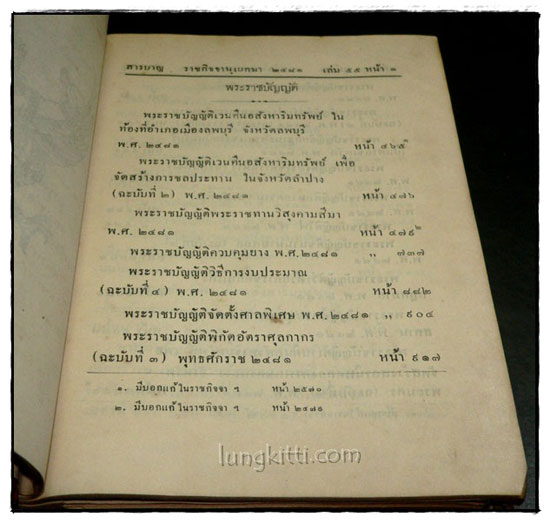 สารบาญ ราชกิจจานุเบกษา ๒๔๘๑ เล่ม ๕๕ หน้า ๑
พระราชบัญญัติ
พระราชบัญญัติเวนคืนอสังหาริมทรัพย์ ใน
ท้องที่อำเภอเมืองลพบุรี จังหวัดลพบุรี
พ.ศ. ๒๔๘๑ หน้า ๔๖๕
พระราชบัญญัติเวนคืนอสังหาริมทรัพย์ เพื่อ
จัดสร้างการชลประทาน ในจังหวัดลำปาง
(ฉะบับที่ ๒) พ.ศ. ๒๔๘๑ หน้า ๔๗๖
พระราชบัญญัติพระราชทานวิสุงคามสีมา
พ.ศ. ๒๔๘๑ หน้า ๔๗๙๒
พระราชบัญญัติควบคุมยาง พ.ศ.๒๔๘๑ ,, ๗๓๗
พระราชบัญญัติวิธีการงบประมาณ
(ฉะบับที่ ๔) พ.ศ. ๒๔๘๑ หน้า ๘๘๒
พระราชบัญญัติจัดตั้งศาลพิเศษ พ.ศ.๒๔๘๑ ,, ๙๐๔
พระราชบัญญัติพิกัดอัตราศุลกากร
(ฉะบับที่ ๓) พุทธศักราช ๒๔๘๑ หน้า ๙๑๗
๑. มีบอกแก้ในราชกิจจา ฯ หน้า ๒๕๗๐
๒. มีบอกแก้ในราชกิจจา ฯ หน้า ๒๔๗๑
lungkitti.com